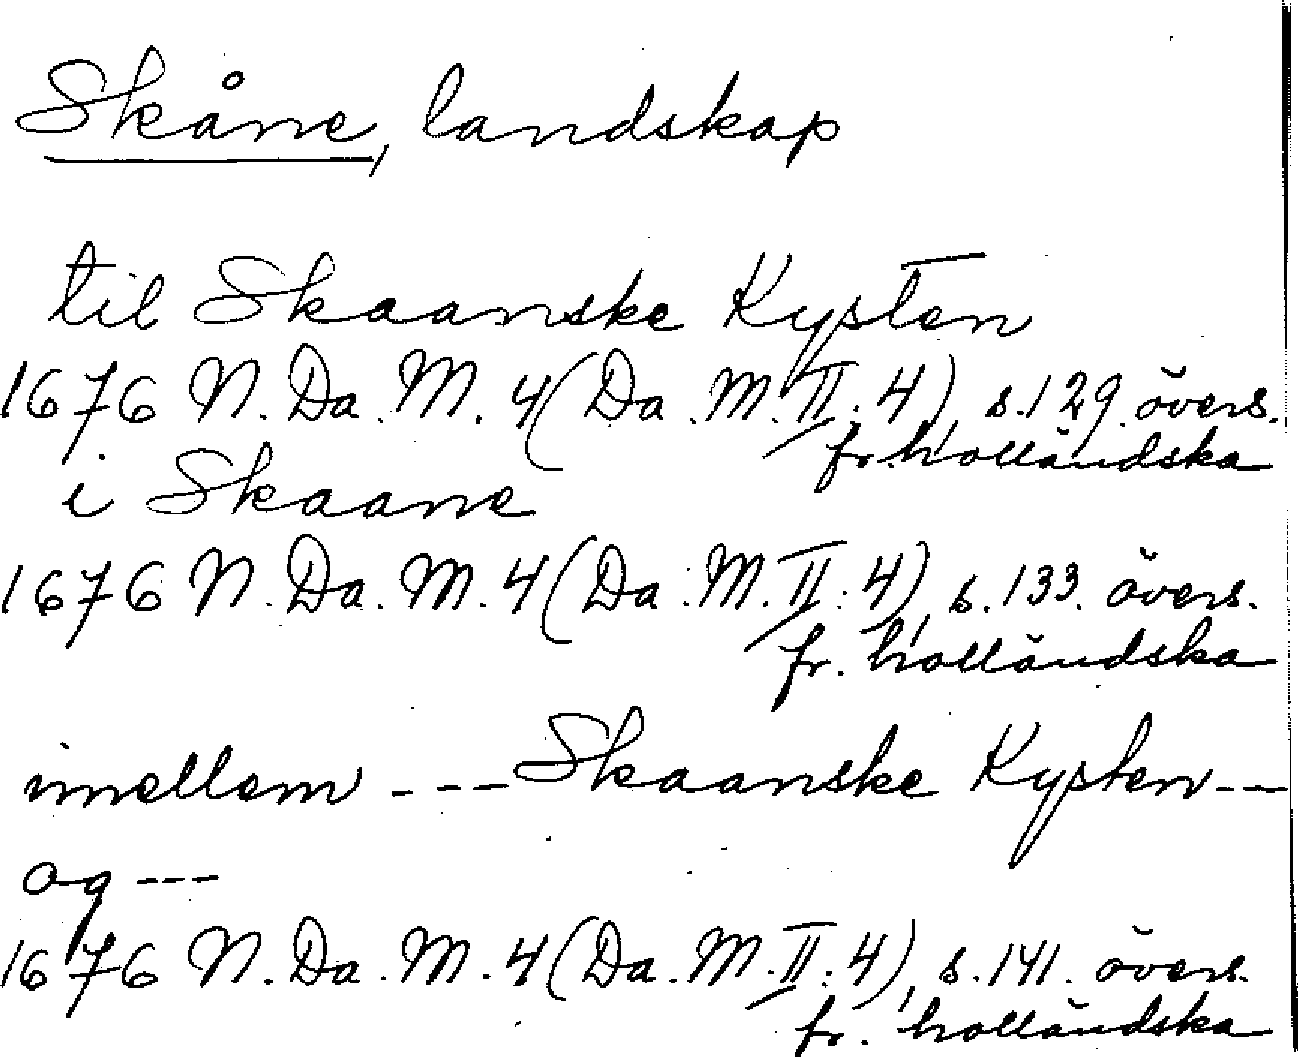 Skåne, landskap
til Skaanske Kysten
1676 N. Da. M. 4 (Da. M. II: 4), s. 129. övers.
fr. holländska
i Skaane
1676 N. Da. M. 4 (Da. M. II: 4), s. 133. övers.
fr. holländska
imellem --- Skaanske Kysten ---
og ---
1676 N. Da. M. 4 (Da. M. II: 4), s. 141. övers.
fr. holländska